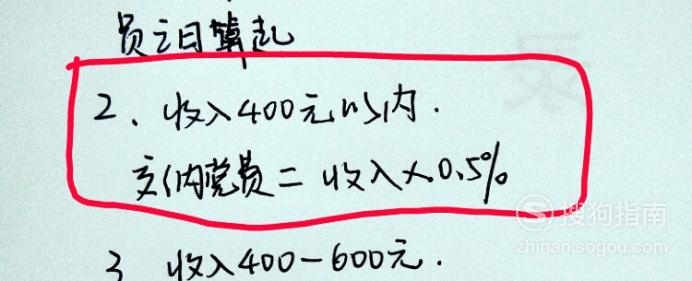 员之日算起
2、收入400元以内.
交纳党费=收入×0.5%
3、收入400-600元.
搜狗指南
zhinan.sogou.com